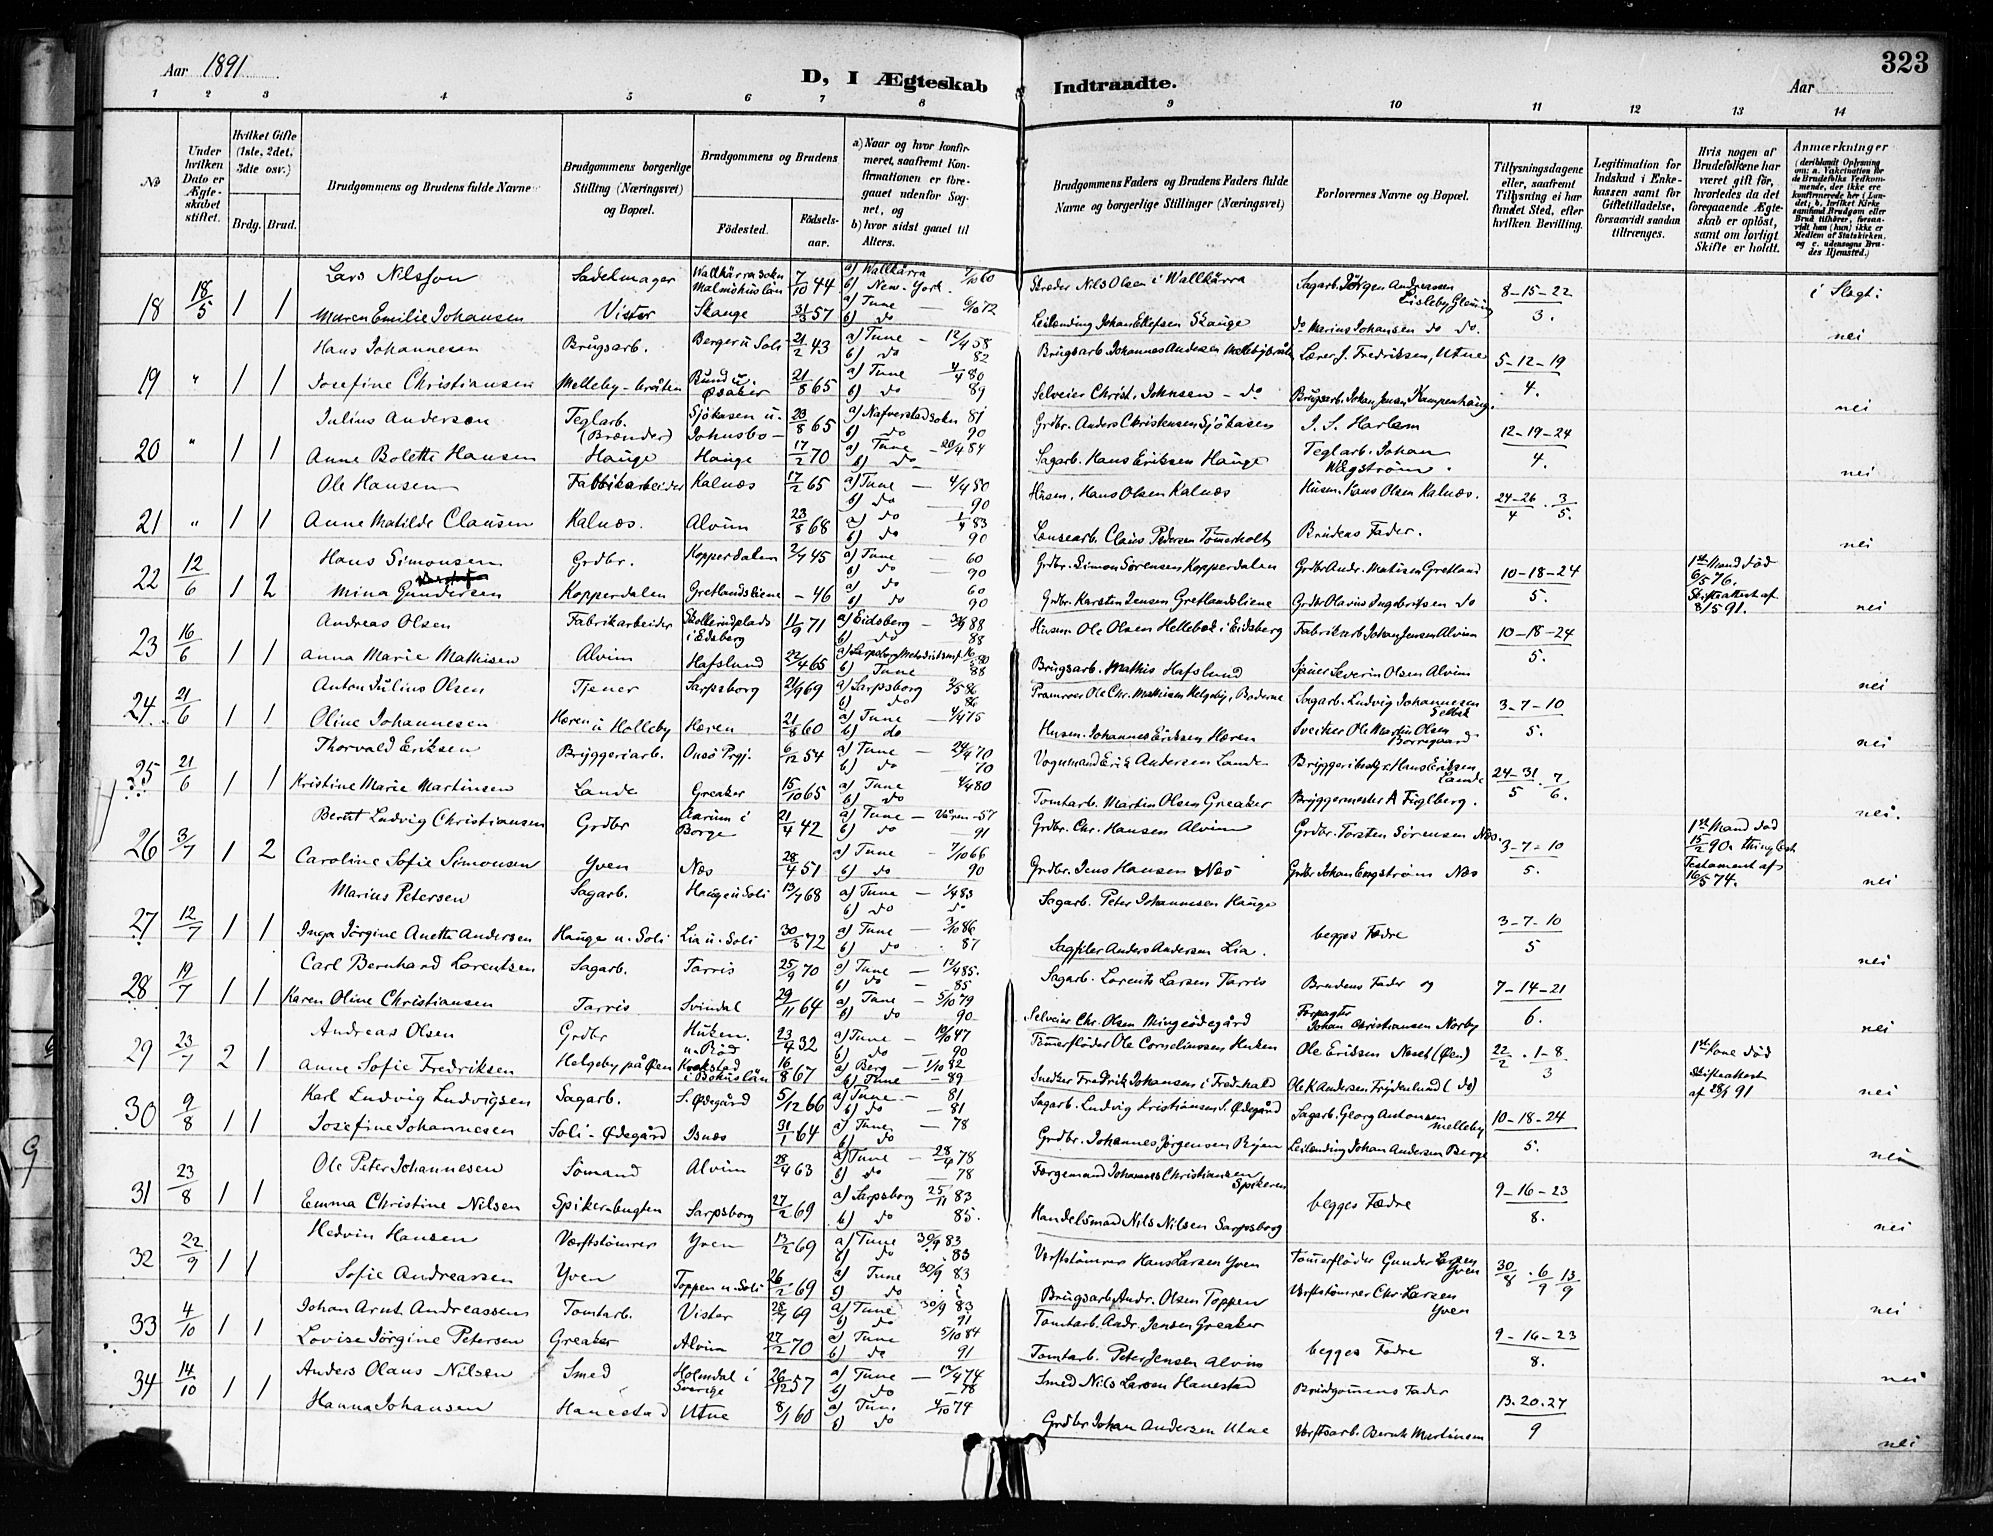 Aar 1891
D, I Ægteskab Indtraadte.
Aar
323
1 2 3 4 5 6 7 8 9 10 11 12 13 14
No
Under hvilken Dato er Ægteskabet stiftet.
Hvilket Gifte (1ste, 2det, 3die osv.)
Brdg. Brud.
Brudgommens og Brudens fulde Navne
Brudgommens borgerlige Stilling (Næringsvei) og Bopæl.
Brudgommens og Brudens
Fødested.
Fødselsaar.
a) Naar og hvor konfirmeret, saafremt Konfirmationen er foregaaet udenfor Sognet, og
b) hvor sidst gaaet til Alters.
Brudgommens Faders og Brudens Faders fulde Navne og borgerlige Stillinger (Næringsvei)
Forlovernes Navne og Bopæl.
Tillysningsdagene eller, saafremt Tillysning ei har fundet Sted, efter hvilken Bevilling.
Legitimation for Indskud i Enkekassen samt for Giftetilladelse, forsaavidt saadan tiltrænges.
Hvis nogen af Brudefolkene har været gift før, hvorledes da det foregaaende Ægteskab er opløst, samt om lovligt Skifte er holdt.
Anmærkninger
18 18/5 1 1
Lars Nilsson Sadelmager Wallkärra sokn Malmöhuslän 7/10 44 a) Wallkärra b) New-York Skræder Nils Olsen i Wallkärra Sagarb. Jörgen Andreassen 8-15-22 i Slegt:
Maren Emilie Johansen Vister Skauge 31/3 57 a) Tune 6/10 72 b) do do Marius Johansen do do. 3. nei
19 " 1 1
Hans Johannesen Brugsarb. Berger u Soli 21/2 43 a) Tune b) do 82 Brugsarb. Johannes Andersen Lærer J. Fredriksen, Utne 5-12-19
Josefine Christiansen Melleby-bråten 21/8 65 a) Tune 80 b) do 89 Selveier Christ. Johnsen - do Brugsarb. Johan Jensen Kampenhaug. 4. nei
20 " 1 1
Julius Anderson Teglarb. (Brænder) 23/8 65 a) Nafverstad sokn 81 b) do 90 Grdbr. Anders Christensen Sjökasen J. S. Harlem 12-19-24
Anne Bolette Hansen Hauge Hauge 17/2 70 a) Tune 20/4 84 b) do Sagarb. Hans Eriksen Hauge Teglarb. Johan 4. nei
21 " 1 1
Ole Hansen Fabrikarbeider Kalnæs 17/2 65 a) Tune 4/4 80 b) do 90 Husm. Hans Olsen Kalnæs Husm. Hans Olsen Kalnæs. 24-26/4 . 3/5.
Anne Matilde Clausen Kalnæs. Alvim 23/8 68 a) do 83 b) do 90 Claus Pedersen Tømerholt Brudens Fader. nei
22 12/6 1 2
Hans Simonsen Grdbr. Kopperdalen 2/7 45 a) Tune 60 b) do 90 Grdbr. Simon Sørensen Kopperdalen Grdbr. Andr. Matisen Gretland 10-18-24 1ste Mand død 6/5 76. Skifteattest af 8/5 91.
Mina Gundersen Kopperdalen Gretlandsliene - 46 a) do 60 b) do 90 Grdbr. Karsten Jensen Gretlandsliene Grdbr Olavius Ingebritsen do 5. nei
23 16/6 1 1
Andreas Olsen Fabrikarbeider i Edsberg 11/9 71 a) Eidsberg 88 b) do 88 Husm Ole Olsen Hellebek i Eidsberg Fabrikarb Johan Jensen Alvim 10-18-24
Anna Marie Mathisen Alvim Hafslund 22/4 65 b) Tune 88 Brugsarb. Mathis Hafslund Severin Olsen Alvim 5. nei
24 21/6 1 1
Anton Julius Olsen Tjener Sarpsborg 21/9 69 a) Sarpsborg 2/5 86 b) do 86 Pramroer Ole Chr. Mathisen Helgeby, Boderne Sagarb. Ludvig Johannesen Selbak 3-7-10
Oline Johannesen Hæren u Holleby Hæren 21/8 60 a) Tune 4/4 75 b) do Husm. Johannes Eriksen Hæren Sveitser Ole Martin Olsen Borregaard 5. nei
25 21/6 1 1
Thorvald Eriksen Bryggeriarb. Onsö Prgj. 6/12 54 a) Tune 24/4 70 b) 70 Vognmand Erik Andersen Lande Hans Eriksen Lande 24-31/5 . 7/6.
Kristine Marie Martinsen Lande Greaker 15/10 65 a) Tune 4/4 80 b) do Tomtarb. Martin Olsen Greaker Bryggermester A Figlberg. nei.
26 3/7 1 2
Bernt Ludvig Christiansen Grdbr Aarum i Borge 21/4 42 a) Tune - Våren - 57 b) do 91 Grdbr. Chr. Hansen Alvim Grdbr. Torsten Sørensen Næs. 3-7-10 1ste Mand død 15/2 90. thinglæst Testament af 16/5 74.
Caroline Sofie Simonsen Yven Næs 28/4 51 a) Tune 7/10 66 b) do 90 Grdbr. Jens Hansen Næs Grdbr Johan Engstrøm Næs 5. nei
27 12/7 1 1
Marius Petersen Sagarb. Hauge u Soli 13/7 68 a) Tune 1/4 83 b) do do Sagarb. Peter Johannesen Hauge begges Fædre 3-7-10
Inga Jörgine Anette Andersen Hauge u. Soli Lia u. Soli 30/3 72 a) Tune 3/10 86 b) do 87 Anders Andersen Lia. 5 nei
28 19/7 1 1
Carl Bernhard Lorentsen Sagarb. Tarris 25/9 70 a) Tune 12/4 85. b) do 85 Sagarb. Lorents Larsen Tarris Brudens Fader og 7-14-21
Karen Oline Christiansen Tarris Svindal 29/11 64 a) Tune 5/10 79 b) do 90 Selveier Chr. Olsen Mingeødegård Forpagter Johan Christiansen Norby 6. nei
29 23/7 2 1
Andreas Olsen Grdbr Huken u. Röd 23/4 32 a) Tune 47 b) do 90 Tømerfløder Ole Corneliussen Huken Ole Eriksen Neset (Øen) 22/2 . 1-8/3 1ste Kone død Skifteattest af 28/1 91
Anne Sofie Fredriksen Helgeby på Øen i Bohuslän 16/8 67 a) Berg 1/10 82 b) Tune 89 Snedker Fredrik Johansen i Fredrhald Ole K Andersen Frydenlund (do) nei
30 9/8 1 1
Karl Ludvig Ludvigsen Sagarb. S. Ødegård 5/12 66 a) Tune 81 b) do 81 Sagarb. Ludvig Kristiansen S. Ødegård Sagarb. Georg Antonsen Melleby 10-18-24
Josefine Johannesen Soli-Ødegård Isnæs 31/1 64 a) Tune 78 b) do Grdbr. Johannes Jørgensen Leilending Johan Andersen Berge 5. nei
31 23/8 1 1
Ole Peter Johannesen Sömand Alvim 28/4 63 a) Tune 28/4 78 b) do 78 Færgemand Johannes Christiansen Spikeren begges Fædre 9-16-23
Emma Christine Nilsen Spikerbugten Sarpsborg 27/2 69 a) Sarpsborg 25/11 83 b) do 85. Handelsmand Nils Nilsen Sarpsborg 8. nei
32 22/9 1 1
Hedvin Hansen Værftstømrer Yven 13/2 69 a) Tune 30/9 83 b) do 83 Værftstømrer Hans Larsen Yven Tømerfløder Gunder Larsen Yven 30/8 . 6/9 13/9
Sofie Andreassen Yven Toppen u. Soli 26/2 69 a) Tune 30/9 83 b) do Brugsarb. Andr. Olsen Toppen Værftstømrer Chr. Larsen Yven nei
33 4/10 1 1
Johan Arnt Andreassen Tomtarb. Vister 28/7 69 a) Tune 30/9 83 b) do 91 Tomtarb. Andr. Jensen Greaker begges Fædre 9-16-23
Lovise Jörgine Petersen Greaker Alvim 27/2 70 a) Tune 5/10 84 b) do 91 Tomtarb. Peter Jensen Alvim 8. nei
34 14/10 1 1
Anders Olaus Nilsen Smed Holmdal i Sverige 26/12 57 a) Tune 74 b) do 78 Smed Nils Larsen Hanestad Brudgomens Fader 13-20-27
Hanna Johansen Hanestad Utne 8/1 60 a) Tune 4/10 74 b) do Grdbr Johan Andersen Utne Værftsarb. Bernt Martinsen 9 nei